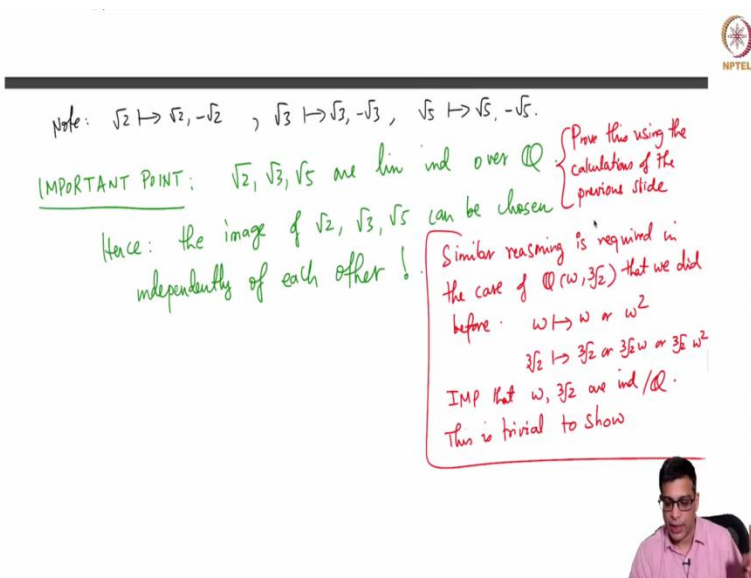 NPTEL
Note: √2 ↦ √2, -√2 , √3 ↦ √3, -√3, √5 ↦ √5, -√5.
IMPORTANT POINT: √2, √3, √5 are lin ind over ℚ.
Prove this using the
calculations of the
previous slide
Hence: the image of √2, √3, √5 can be chosen
independently of each other!
Similar reasoning is required in
the case of ℚ(ω, ∛2) that we did
before. ω ↦ ω or ω²
∛2 ↦ ∛2 or ∛2 ω or ∛2 ω²
IMP that ω, ∛2 are ind/ℚ.
This is trivial to show